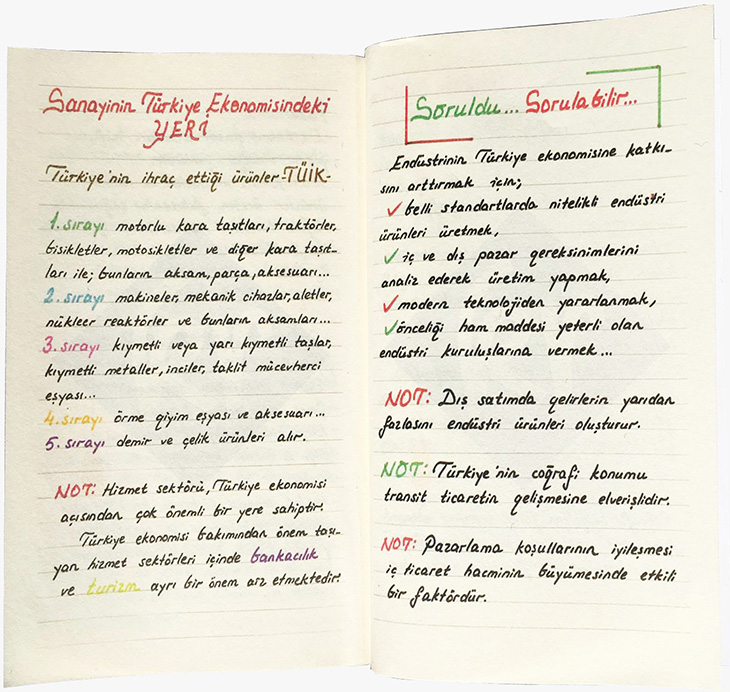 Sanayinin Türkiye Ekonomisindeki
YERİ
Türkiye'nin ihraç ettiği ürünler -TÜİK-
1. sırayı motorlu kara taşıtları, traktörler,
bisikletler, motosikletler ve diğer kara taşıt-
ları ile; bunların aksam, parça, aksesuarı...
2. sırayı makineler, mekanik cihazlar, aletler,
nükleer reaktörler ve bunların aksamları...
3. sırayı kıymetli veya yarı kıymetli taşlar,
kıymetli metaller, inciler, taklit mücevherci
eşyası...
4. sırayı örme giyim eşyası ve aksesuarı...
5. sırayı demir ve çelik ürünleri alır.
NOT: Hizmet sektörü, Türkiye ekonomisi
açısından çok önemli bir yere sahiptir.
Türkiye ekonomisi bakımından önem taşı-
yan hizmet sektörleri içinde bankacılık
ve turizm ayrı bir önem arz etmektedir.
Soruldu... Sorulabilir...
Endüstrinin Türkiye ekonomisine katkı-
sını arttırmak için;
✓ belli standartlarda nitelikli endüstri
ürünleri üretmek,
✓ iç ve dış pazar gereksinimlerini
analiz ederek üretim yapmak,
✓ modern teknolojiden yararlanmak,
✓ önceliği ham maddesi yeterli olan
endüstri kuruluşlarına vermek...
NOT: Dış satımda gelirlerin yarıdan
fazlasını endüstri ürünleri oluşturur.
NOT: Türkiye'nin coğrafi konumu
transit ticaretin gelişmesine elverişlidir.
NOT: Pazarlama koşullarının iyileşmesi
iç ticaret hacminin büyümesinde etkili
bir faktördür.